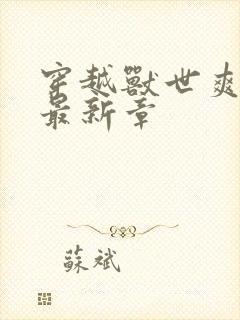 穿越獸世爽
最新章
蘇斌